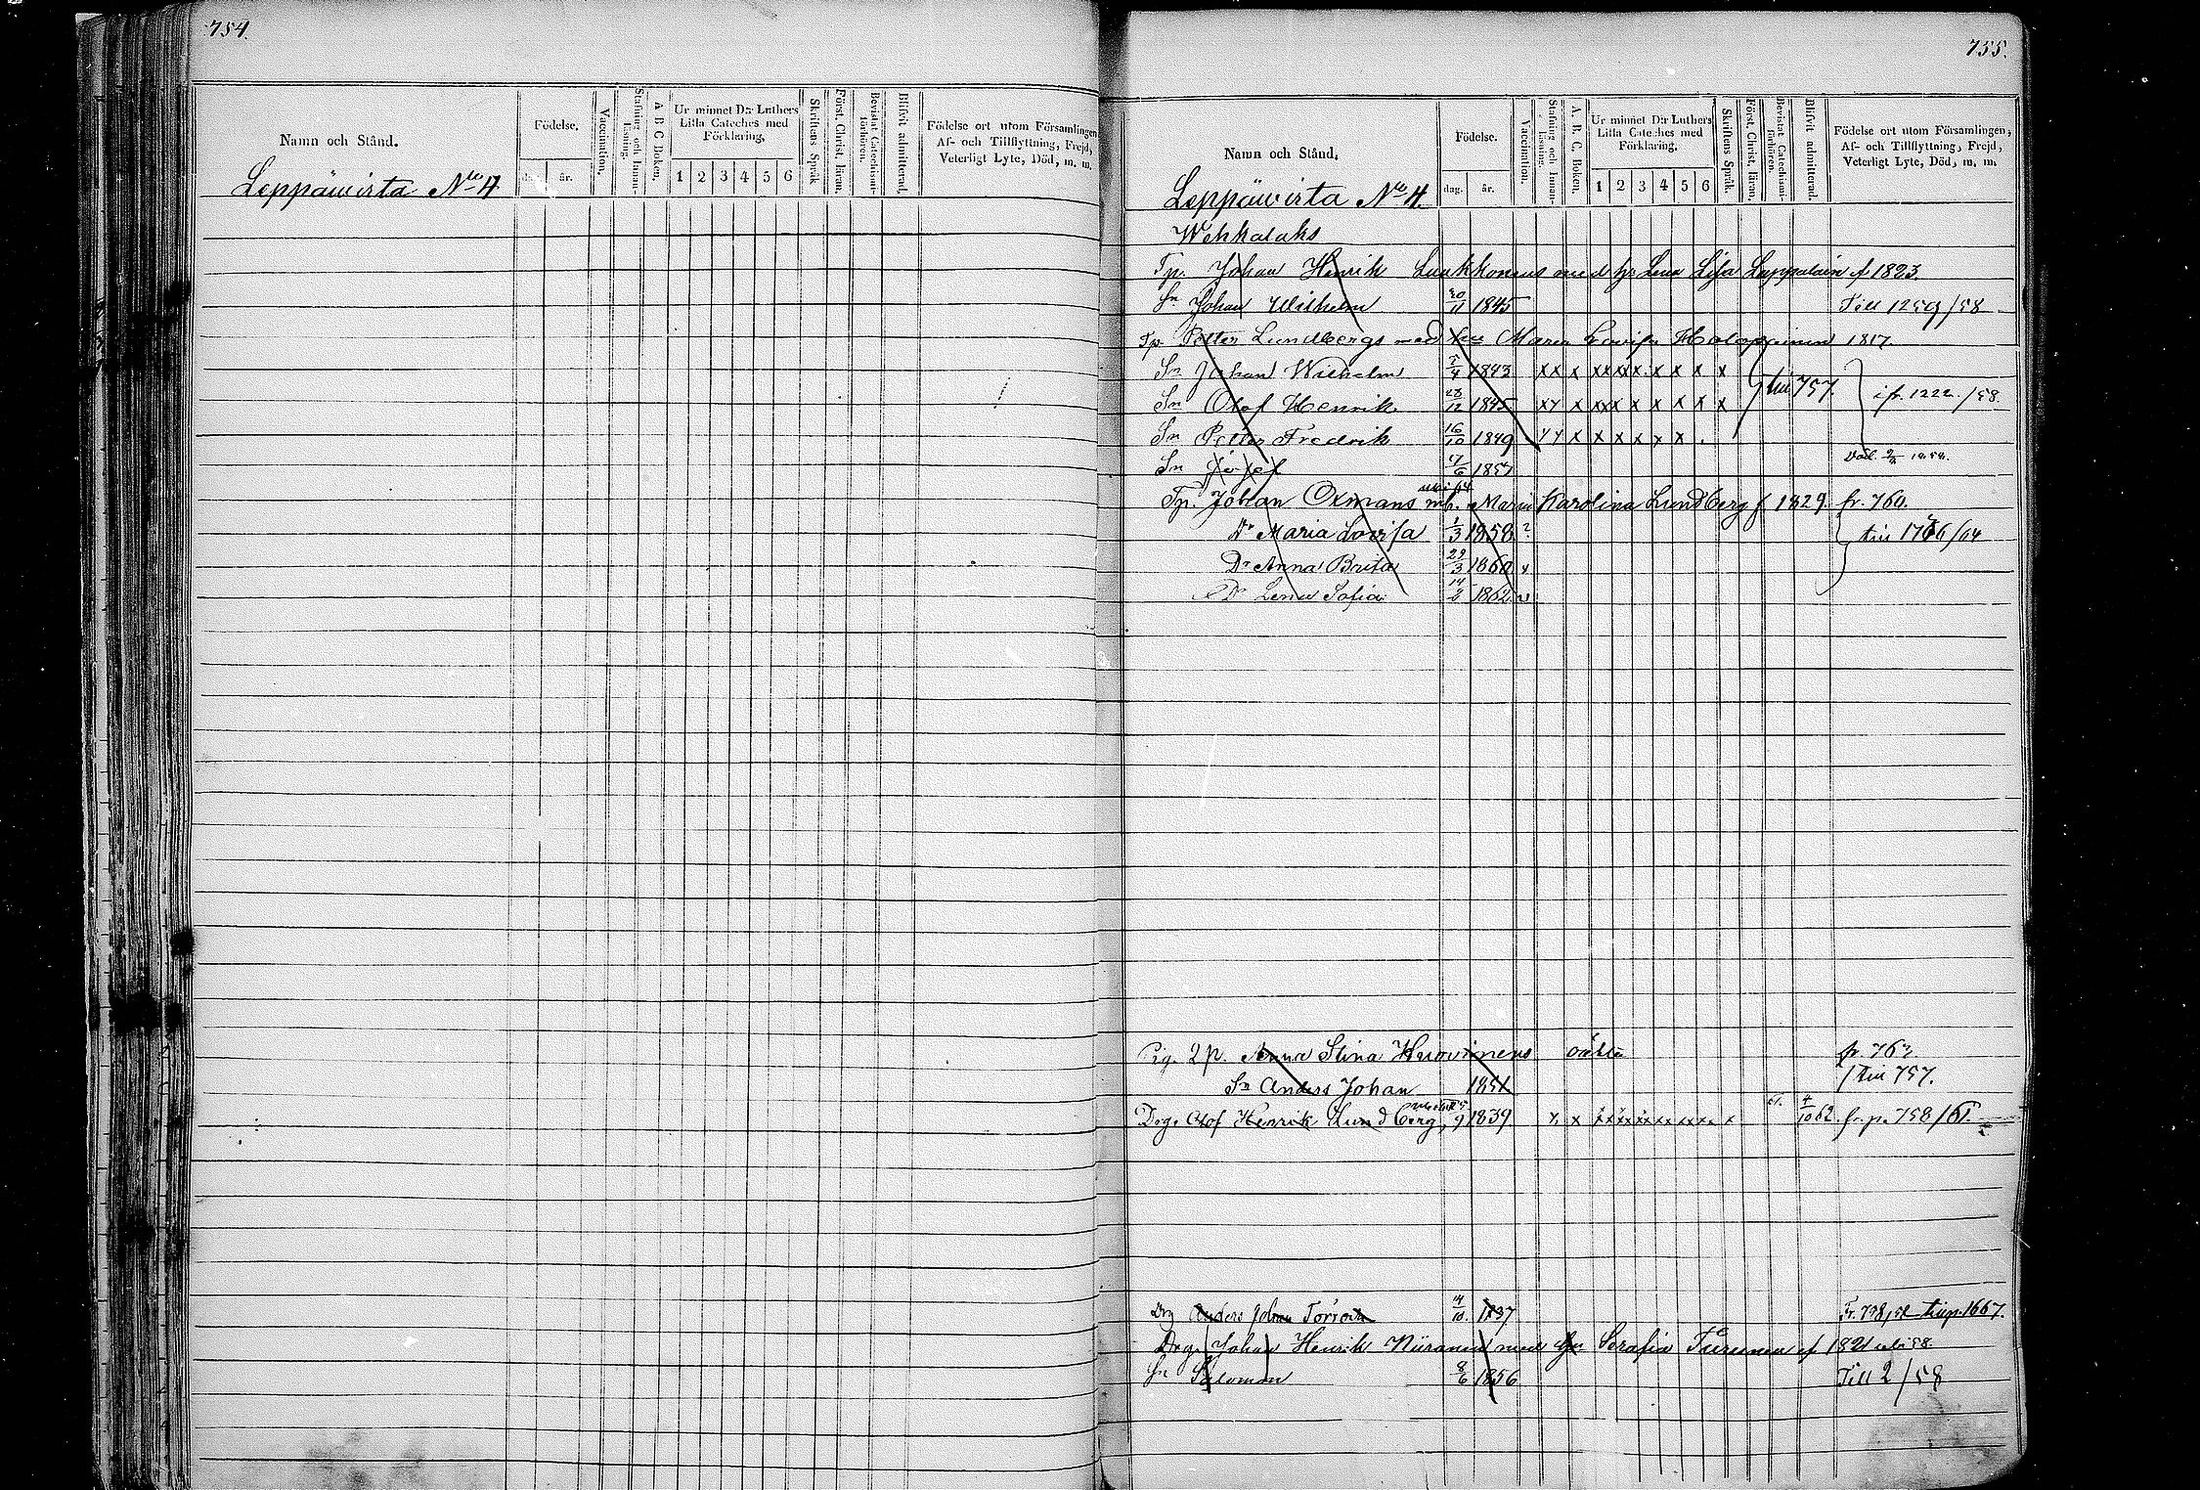 754.
Namn och Stånd.
Födelse.
dag. år.
Vaccination.
Stafning och Innanläsning.
A B C Boken.
Ur minnet D:r Luthers Lilla Cateches med Förklaring.
1 2 3 4 5 6
Skriftens Språk
Först. Christ. läran.
Bevistat Catechismiförhören.
Blifvit admitterad.
Födelse ort utom Församlingen,
Af- och Tillflyttning, Frejd,
Veterligt Lyte, Död, m. m.
Leppäwirta No 4
755.
Namn och Stånd.
Födelse.
dag. år.
Vaccination.
Stafning och Innanläsning.
A. B. C. Boken.
Ur minnet D:r Luthers Lilla Cateches med Förklaring.
1 2 3 4 5 6
Skriftens Språk.
Först. Christ. läran.
Bevistat Catechismiförhören.
Blifvit admitterad.
Födelse ort utom Församlingen,
Af- och Tillflyttning, Frejd,
Veterligt Lyte, Död, m. m.
Leppäwirta No 4.
Wehkalaks
Tp. Johan Henrik Luukkonens med hu Lena Lisa Lappalain f 1823
Sn Johan Wilhelm 20/11 1845 Till 1259/58
Tp. Petter Lundbergs med Maria Lovisa Holopainen 1817.
Sn Johan Wilhelm 7/4 1843 x x x x x x x x x x x x
Sn Olof Henrik 23/12 1845 x x x x x x x x x x x x till 757. i fr. 1222/58.
Sn Petter Fredrik 16/10 1849 x x x x x x x x
Sn 17/6 1857 1858.
Tp. Johan Oxmans Maria Karolina Lundberg f 1829. fr. 760.
Dr Maria Lovisa 1/3 1858 till 1766/64
Dr Anna Brita 29/3 1860
Dr Lena Sofia 1862
Pig. 2 p. Anna Stina fr. 763
Sn Anders Johan 1851 till 757.
Drg. Olof Henrik Lundberg 1839 x x x x x x x x x x x 4/10 62. fr. p. 758/61.
Drg Anders Johan 14/10. 1837 till p. 1667.
Drg. Johan Henrik Niiranen med Serafia Turunen f 1821
Sn Salomon 8/6 1856 Till 2/58